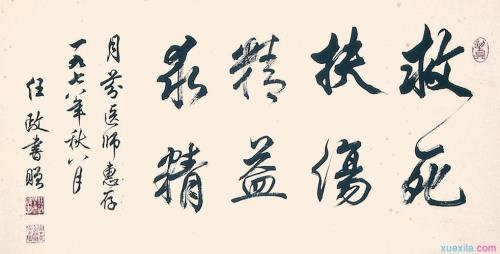 救死
扶傷
精益
求精
月芬医师惠存
一九七八年秋八月
任政書贈
xuexila.com